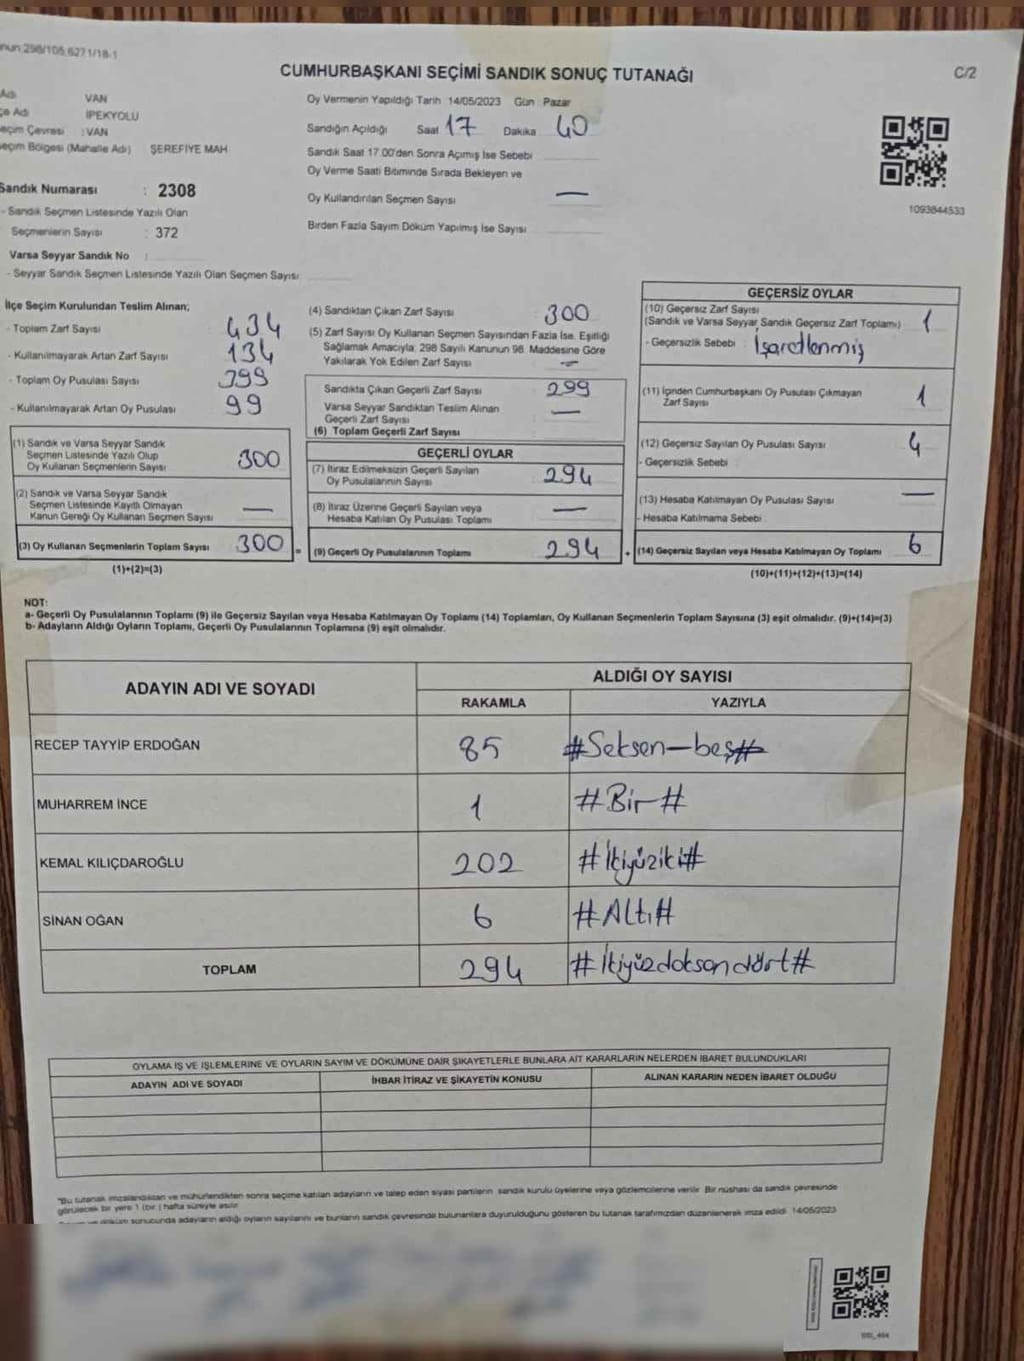 CUMHURBAŞKANI SEÇİMİ SANDIK SONUÇ TUTANAĞI
C/2
VAN
İPEKYOLU
:VAN
(Mahalle Adı) ŞEREFİYE MAH
Sandık Numarası : 2308
- Sandık Seçmen Listesinde Yazılı Olan
Seçmenlerin Sayısı : 372
Varsa Seyyar Sandık No :
- Seyyar Sandık Seçmen Listesinde Yazılı Olan Seçmen Sayısı
Oy Vermenin Yapıldığı Tarih 14/05/2023 Gün : Pazar
Sandığın Açıldığı Saat 17 Dakika 40
Sandık Saat 17.00'den Sonra Açımış İse Sebebi
Oy Verme Saati Bitiminde Sırada Bekleyen ve
Oy Kullandırılan Seçmen Sayısı —
Birden Fazla Sayım Döküm Yapılmış İse Sayısı
1093844533
İlçe Seçim Kurulundan Teslim Alınan;
- Toplam Zarf Sayısı 434
- Kullanılmayarak Artan Zarf Sayısı 134
- Toplam Oy Pusulası Sayısı 399
- Kullanılmayarak Artan Oy Pusulası 99
(1) Sandık ve Varsa Seyyar Sandık
Seçmen Listesinde Yazılı Olup
Oy Kullanan Seçmenlerin Sayısı 300
(2) Sandık ve Varsa Seyyar Sandık
Seçmen Listesinde Kayıtlı Olmayan
Kanun Gereği Oy Kullanan Seçmen Sayısı —
(3) Oy Kullanan Seçmenlerin Toplam Sayısı 300 =
(1)+(2)=(3)
(4) Sandıktan Çıkan Zarf Sayısı 300
(5) Zarf Sayısı Oy Kullanan Seçmen Sayısından Fazla İse, Eşitliği
Sağlamak Amacıyla; 298 Sayılı Kanunun 98. Maddesine Göre
Yakılarak Yok Edilen Zarf Sayısı —
Sandıkta Çıkan Geçerli Zarf Sayısı 299
Varsa Seyyar Sandıktan Teslim Alınan
Geçerli Zarf Sayısı —
(6) Toplam Geçerli Zarf Sayısı
GEÇERLİ OYLAR
(7) İtiraz Edilmeksizin Geçerli Sayılan
Oy Pusulalarının Sayısı 294
(8) İtiraz Üzerine Geçerli Sayılan veya
Hesaba Katılan Oy Pusulası Toplamı —
(9) Geçerli Oy Pusulalarının Toplamı 294 +
GEÇERSİZ OYLAR
(10) Geçersiz Zarf Sayısı
(Sandık ve Varsa Seyyar Sandık Geçersiz Zarf Toplamı) 1
- Geçersizlik Sebebi : İşaretlenmiş
(11) İçinden Cumhurbaşkanı Oy Pusulası Çıkmayan
Zarf Sayısı 1
(12) Geçersiz Sayılan Oy Pusulası Sayısı 4
- Geçersizlik Sebebi :
(13) Hesaba Katılmayan Oy Pusulası Sayısı —
- Hesaba Katılmama Sebebi :
(14) Geçersiz Sayılan veya Hesaba Katılmayan Oy Toplamı 6
(10)+(11)+(12)+(13)=(14)
NOT:
a- Geçerli Oy Pusulalarının Toplamı (9) ile Geçersiz Sayılan veya Hesaba Katılmayan Oy Toplamı (14) Toplamları, Oy Kullanan Seçmenlerin Toplam Sayısına (3) eşit olmalıdır. (9)+(14)=(3)
b- Adayların Aldığı Oyların Toplamı, Geçerli Oy Pusulalarının Toplamına (9) eşit olmalıdır.
ADAYIN ADI VE SOYADI ALDIĞI OY SAYISI
RAKAMLA YAZIYLA
RECEP TAYYİP ERDOĞAN 85 #Seksen-beş#
MUHARREM İNCE 1 #Bir#
KEMAL KILIÇDAROĞLU 202 #İkiyüziki#
SİNAN OĞAN 6 #Altı#
TOPLAM 294 #İkiyüzdoksandört#
OYLAMA İŞ VE İŞLEMLERİNE VE OYLARIN SAYIM VE DÖKÜMÜNE DAİR ŞİKAYETLERLE BUNLARA AİT KARARLARIN NELERDEN İBARET BULUNDUKLARI
ADAYIN ADI VE SOYADI İHBAR İTİRAZ VE ŞİKAYETİN KONUSU ALINAN KARARIN NEDEN İBARET OLDUĞU
*Bu tutanak imzalandıktan ve mühürlendikten sonra seçime katılan adayların ve talep eden siyasi partilerin sandık kurulu üyelerine veya gözlemcilerine verilir. Bir nüshası da sandık çevresinde
görülecek bir yere 1 (bir) hafta süreyle asılır.
döküm sonucunda adayların aldığı oyların sayılarını ve bunların sandık çevresinde bulunanlara duyurulduğunu gösteren bu tutanak tarafımızdan düzenlenerek imza edildi. 14/05/2023